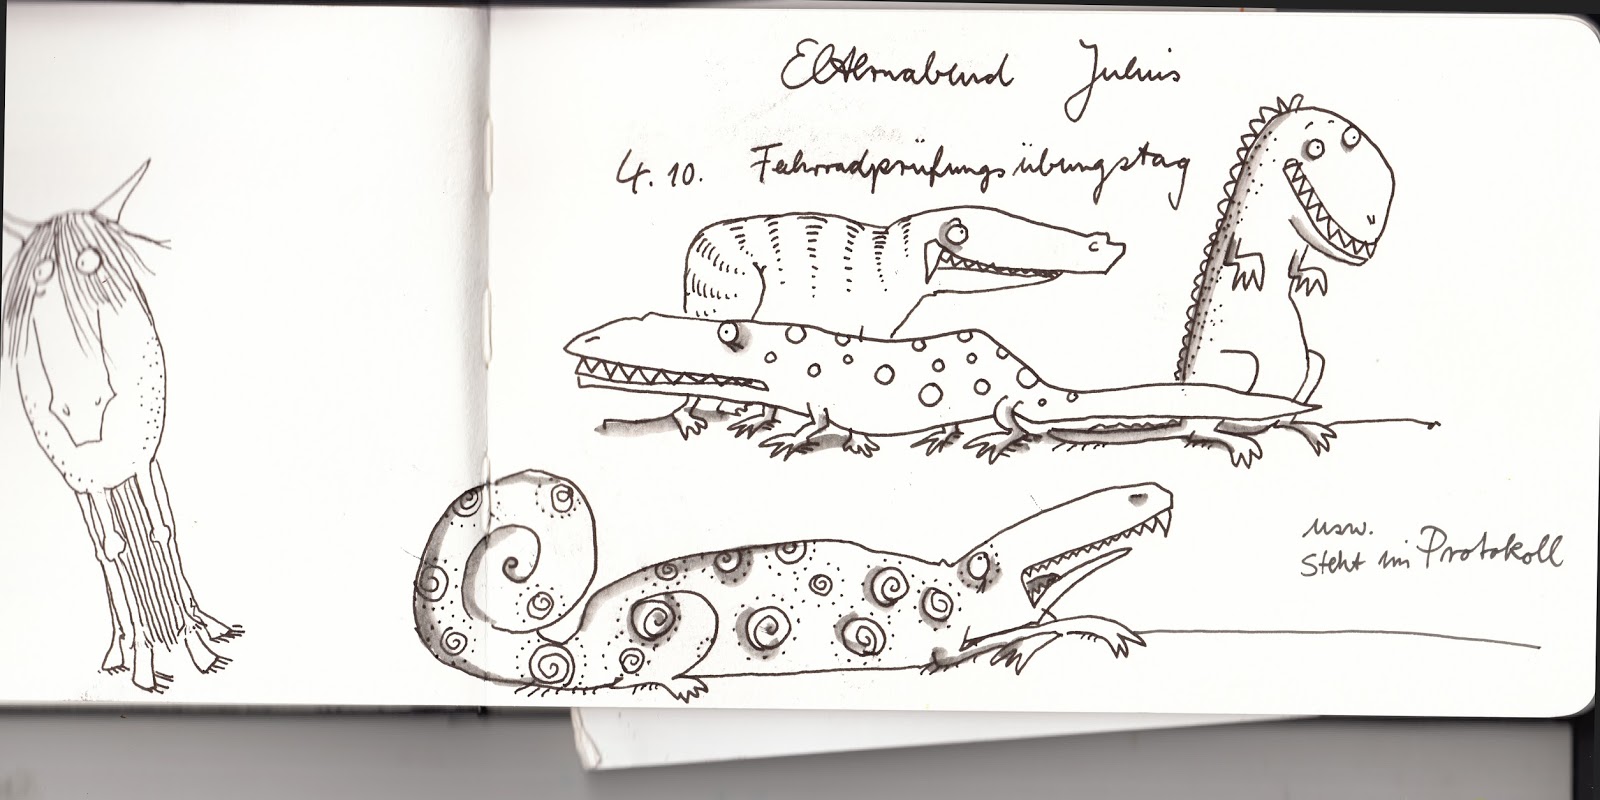 Elternabend Julius
4.10. Fahrradprüfungsübungstag
usw.
steht im Protokoll